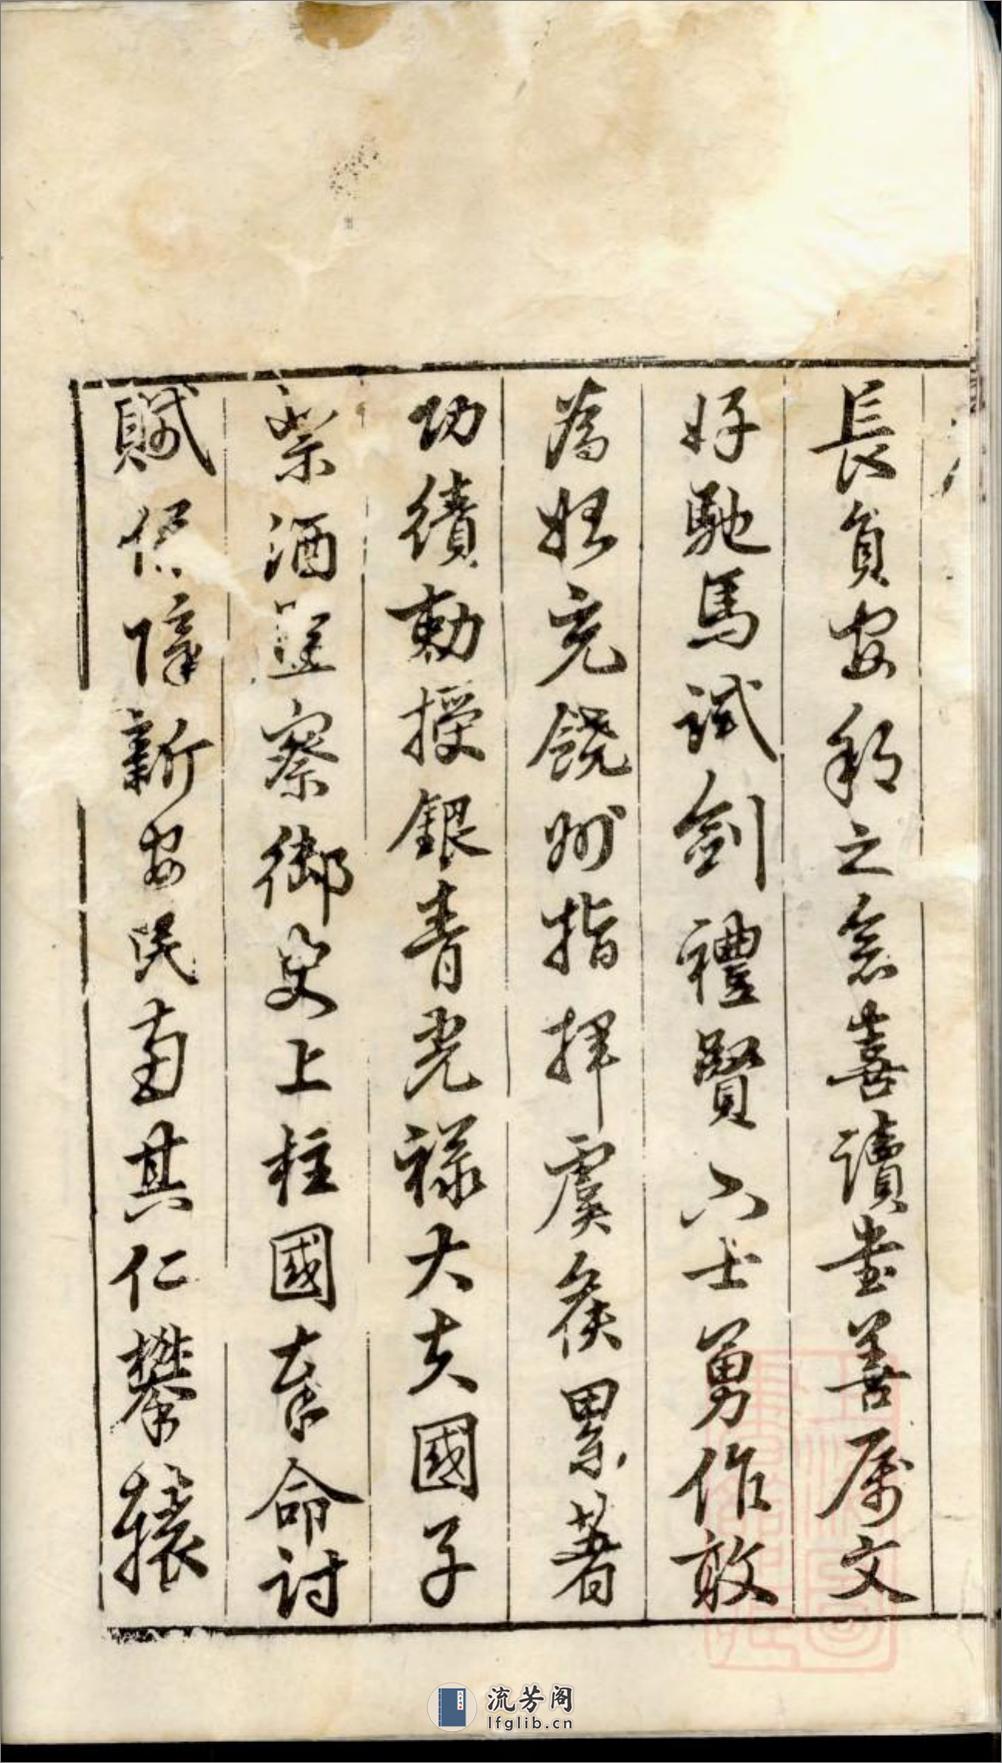 長負安邦之念喜讀書善屬文
好馳馬試劍禮賢下士勇作敢
為始充饒州指揮虞侯累著
功績勅授銀青光祿大夫國子
祭酒監察御史上柱國奉命討
賊保障新安民南其仁攀轅
流芳阁
lfglib.cn